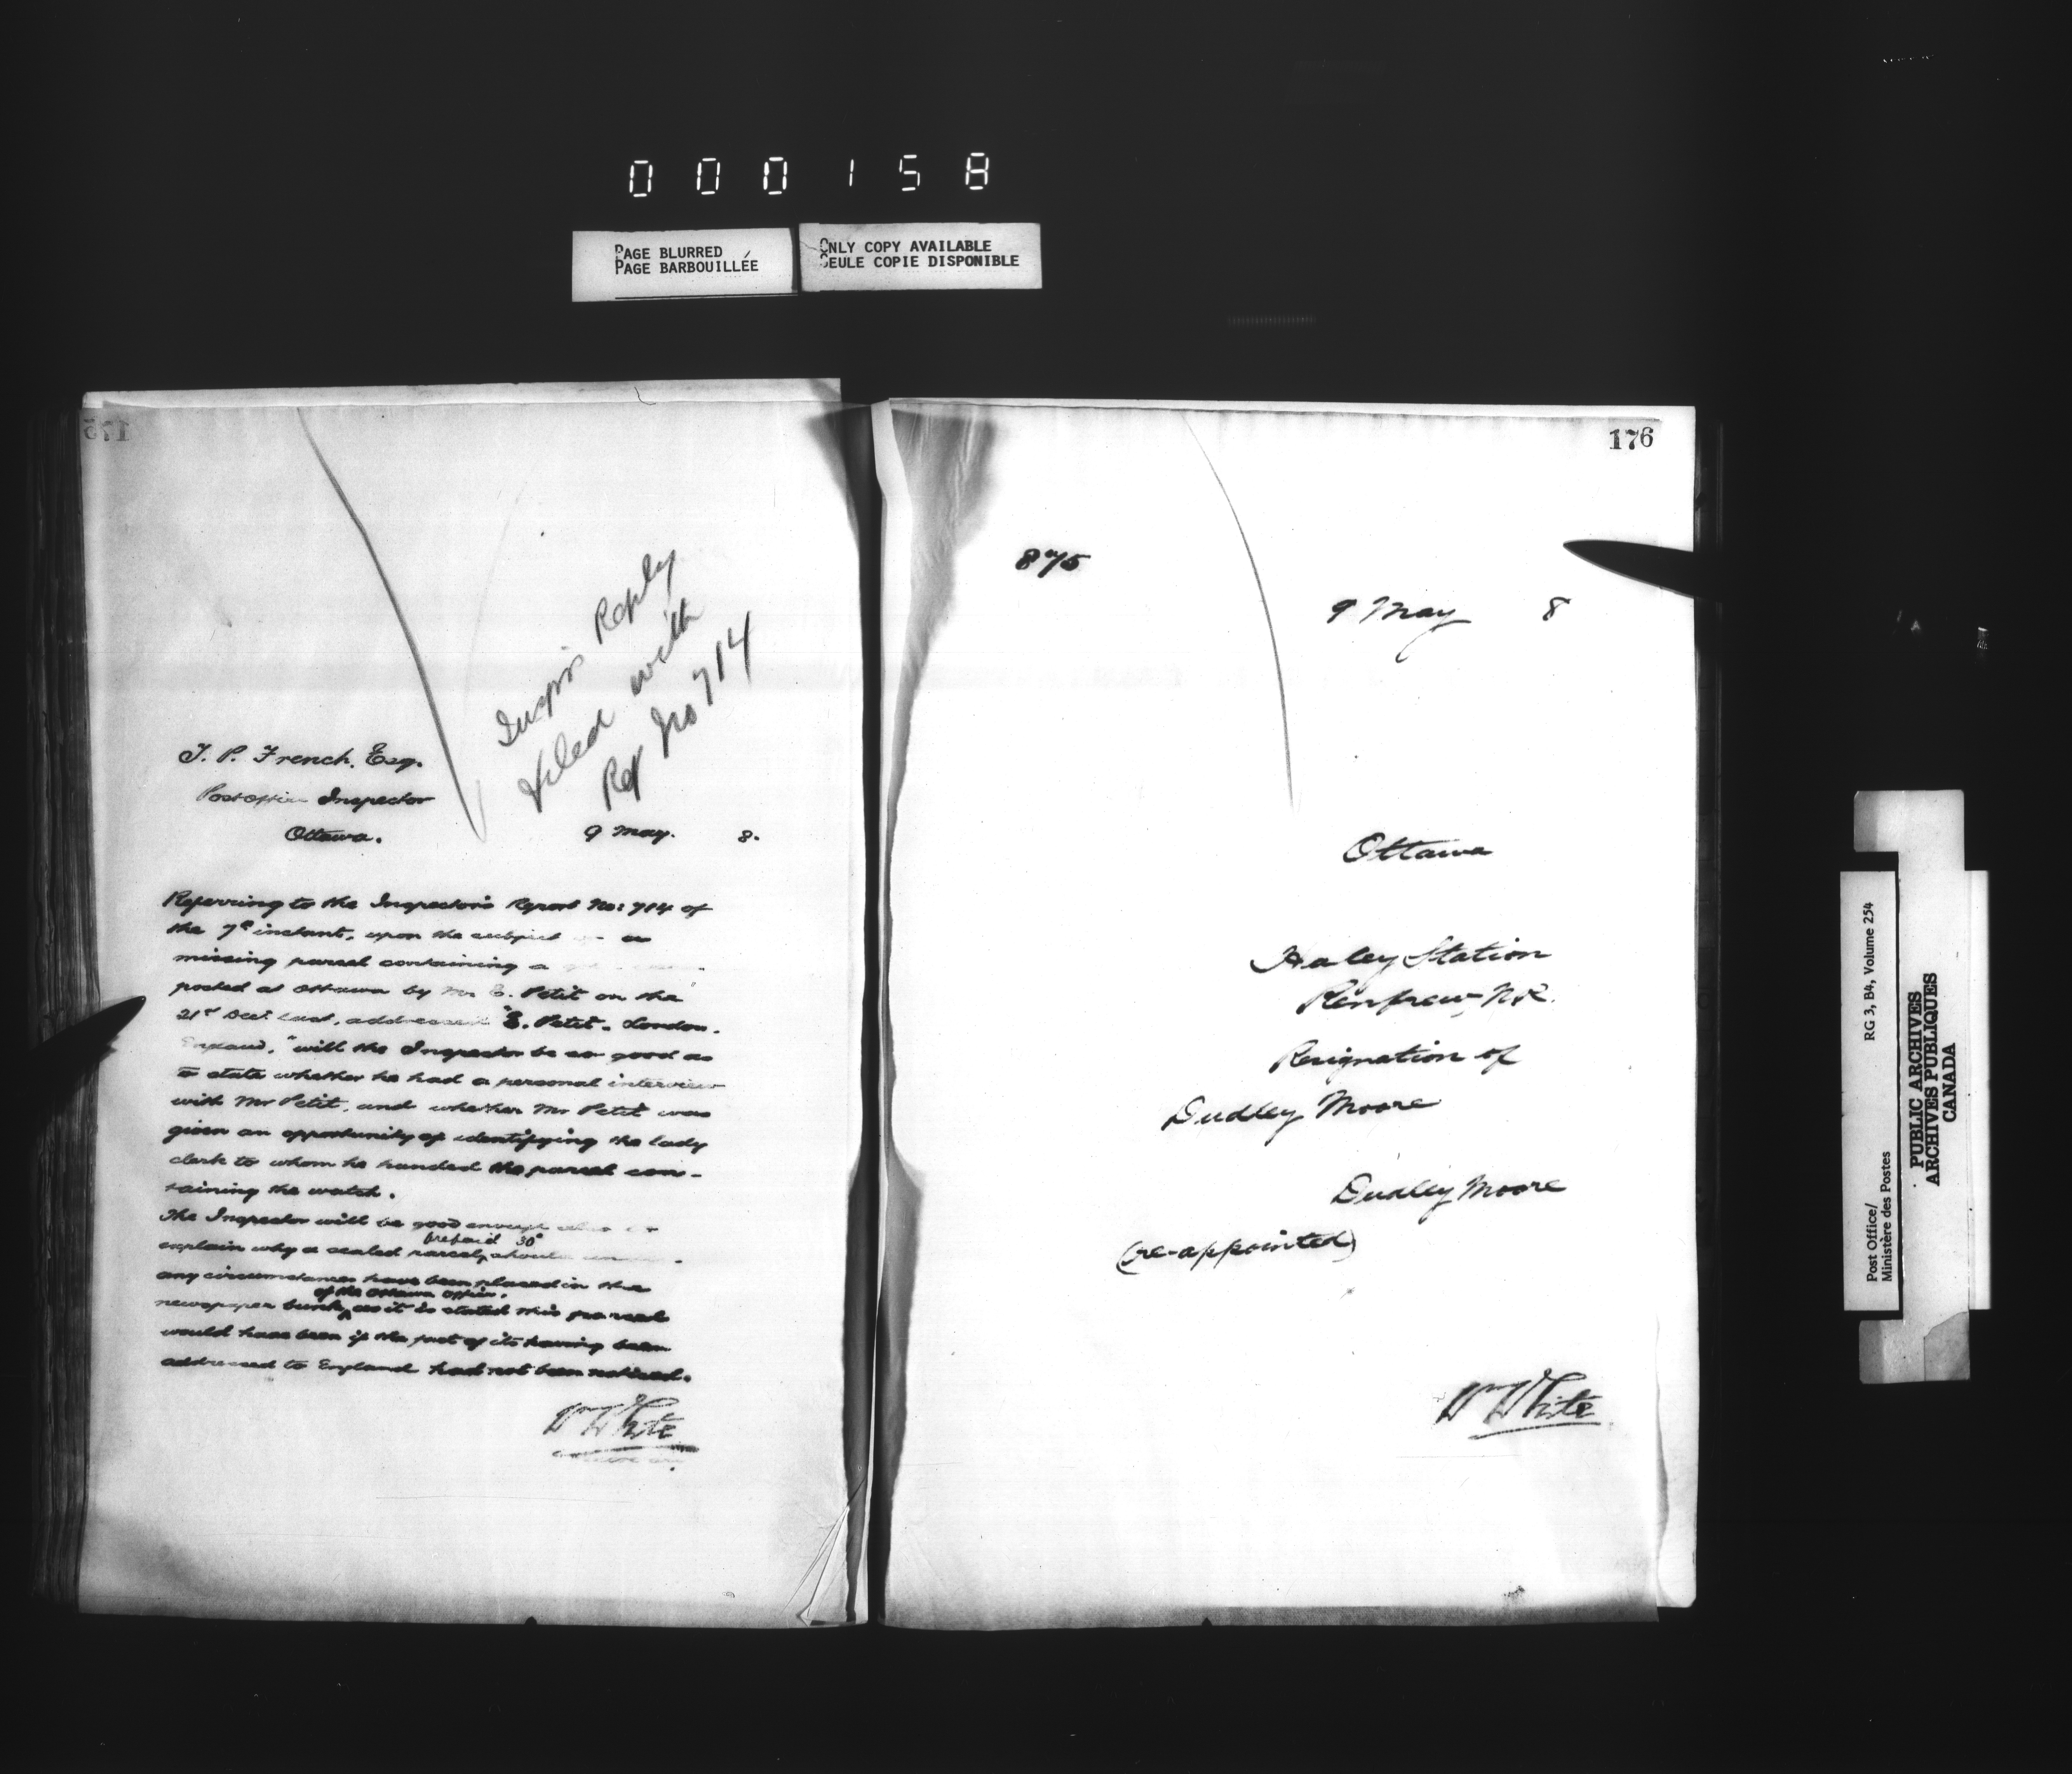 000158
PAGE BLURRED
PAGE BARBOUILLÉE
ONLY COPY AVAILABLE
SEULE COPIE DISPONIBLE
175
Inspr's Reply
filed with
Rept No 714
T. P. French, Esq.
Post Office Inspector
Ottawa.
9 May. 8.
Referring to the Inspector's Report No: 714 of
the 7th instant, upon the subject a
missing parcel containing a
posted at Ottawa by Mr E. Petit on the
21st Decr last, addressed "E. Petit. London.
England," will the Inspector be so good as
to state whether he had a personal interview
with Mr Petit, and whether Mr Petit was
given an opportunity of identifying the lady
clerk to whom he handed the parcel con-
taining the watch.
The Inspector will be good enough also to
prepaid 30c
explain why a sealed parcel, should under
any circumstances have been placed in the
of the Ottawa Office,
newspaper as it is stated this parcel
would have been if the fact of its having been
addressed to England had not been noticed.
Wm White
176
875
9 May 8
Ottawa
Haley Station
Renfrew, N.R.
Resignation of
Dudley Moore
Dudley Moore
(re-appointed)
Wm White
Post Office/
Ministère des Postes
RG 3, B4, Volume 254
PUBLIC ARCHIVES
ARCHIVES PUBLIQUES
CANADA